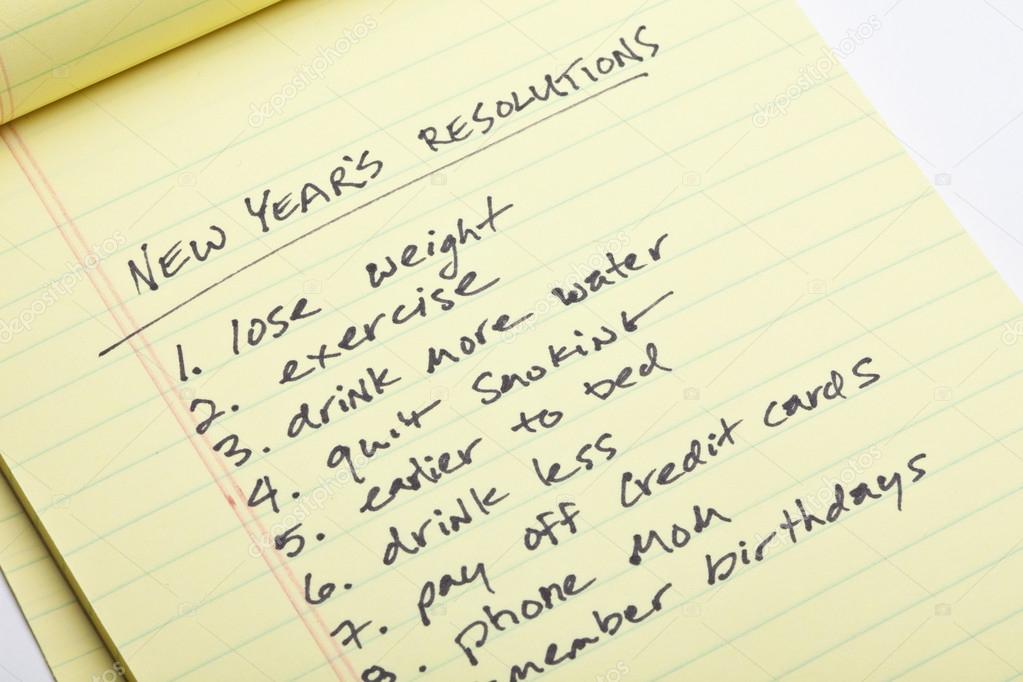 NEW YEAR'S RESOLUTIONS
1. lose weight
2. exercise
3. drink more water
4. quit smoking
5. earlier to bed
6. drink less
7. pay off credit cards
8. phone Mom
member birthdays
depositphotos